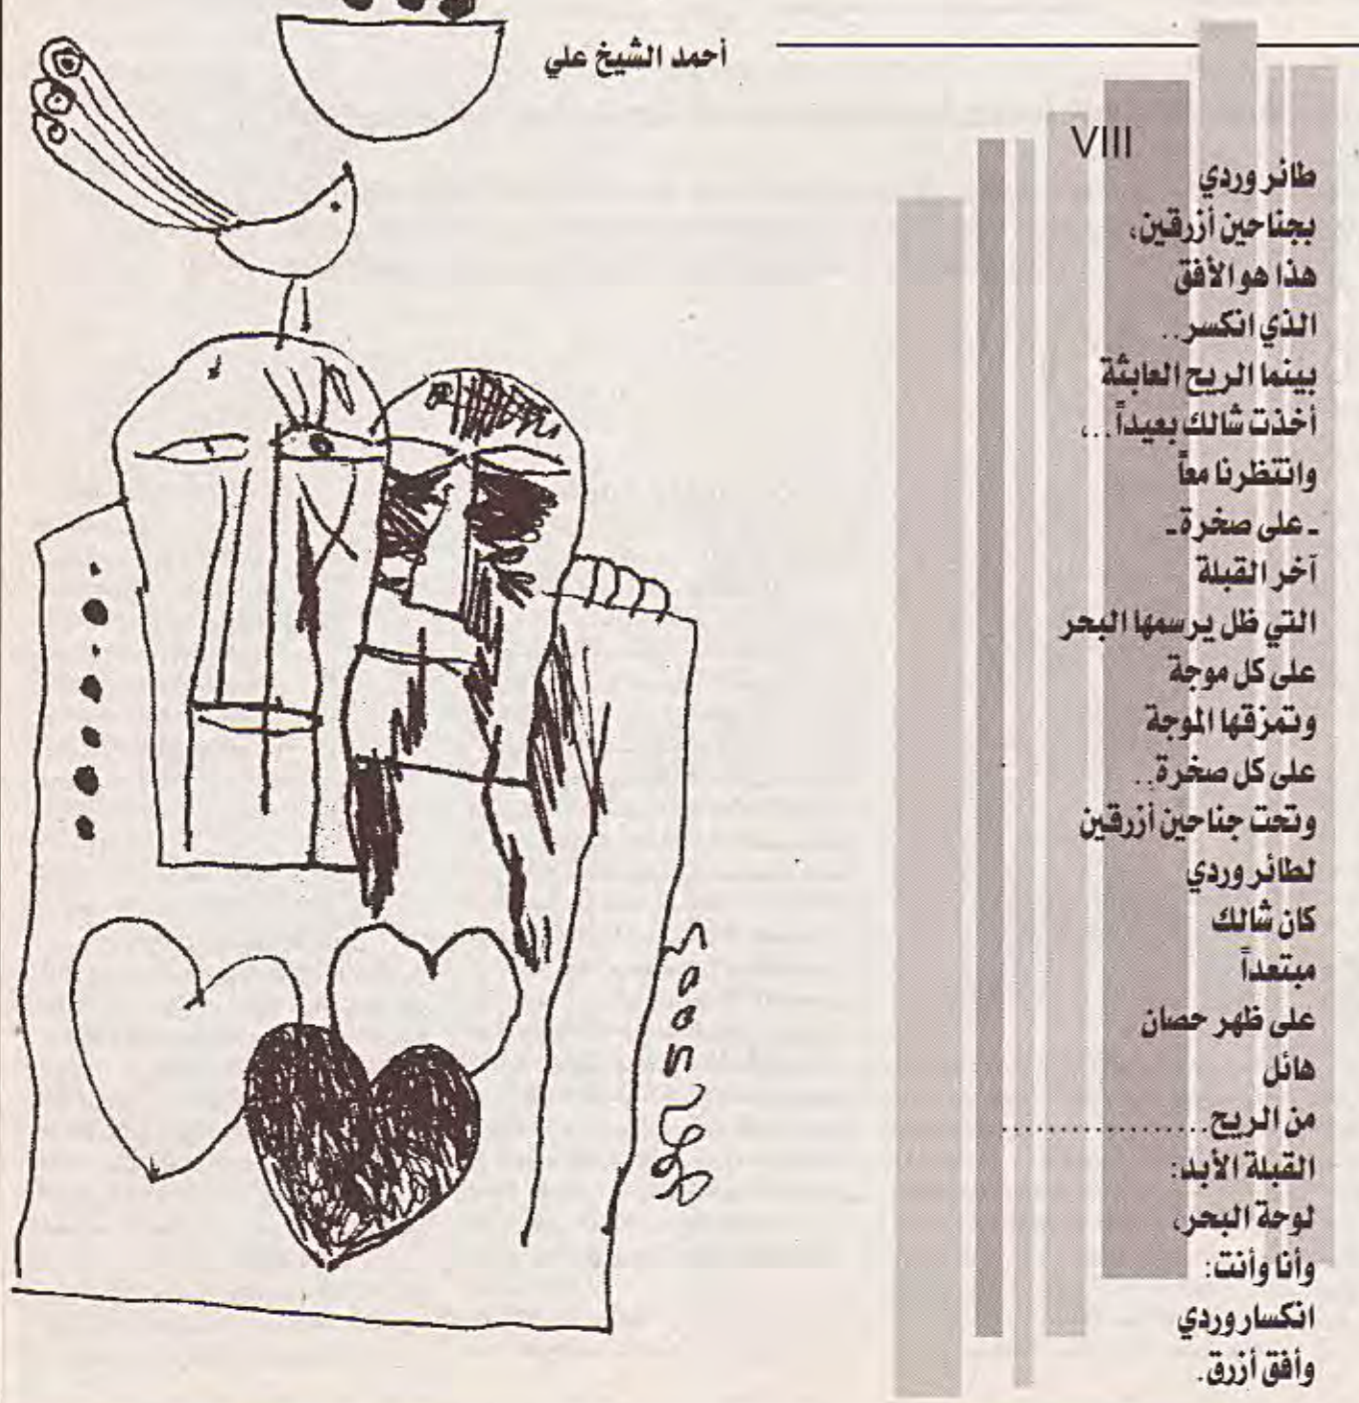 أحمد الشيخ علي
VIII
طائر وردي
بجناحين أزرقين،
هذا هو الأفق
الذي انكسر..
بينما الريح العابثة
أخذت شالك بعيداً..،
وانتظرنا معاً
ـ على صخرة ـ
آخر القبلة
التي ظل يرسمها البحر
على كل موجة
وتمزقها الموجة
على كل صخرة..
وتحت جناحين أزرقين
لطائر وردي
كان شالك
مبتعداً
على ظهر حصان
هائل
من الريح....................
القبلة الأبد:
لوحة البحر،
وأنا وأنت:
انكسار وردي
وأفق أزرق.